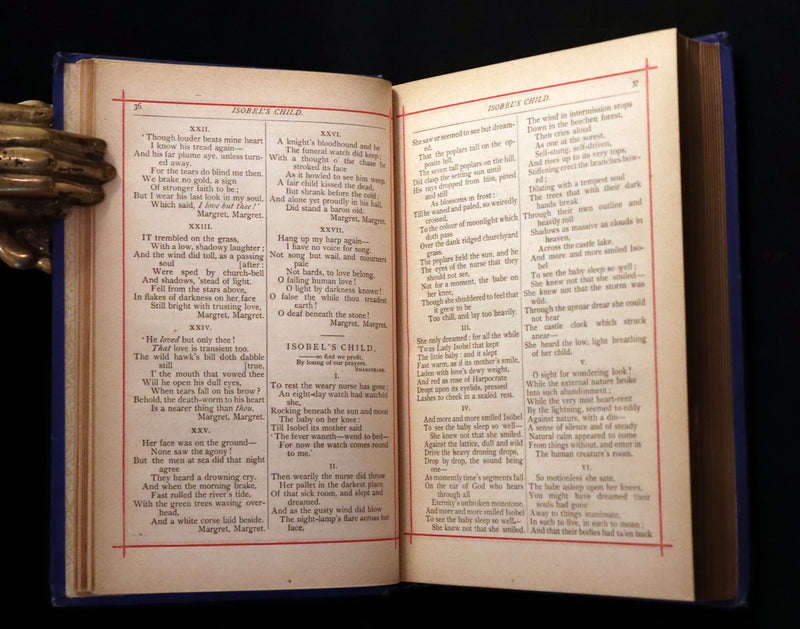 36
ISOBEL'S CHILD.
XXII.
'Though louder beats mine heart
I know his tread again—
And his far plume aye, unless turn-
ed away,
For the tears do blind me then.
We brake no gold, a sign
Of stronger faith to be;
But I wear his last look in my soul,
Which said, I love but thee!'
Margret, Margret.
XXIII.
IT trembled on the grass,
With a low, shadowy laughter;
And the wind did toll, as a passing
soul [after:
Were sped by church-bell
And shadows, 'stead of light,
Fell from the stars above,
In flakes of darkness on her face
Still bright with trusting love,
Margret, Margret.
XXIV.
'He loved but only thee!
That love is transient too.
The wild hawk's bill doth dabble
still [true.
I' the mouth that vowed thee
Will he open his dull eyes,
When tears fall on his brow?
Behold, the death-worm to his heart
Is a nearer thing than thou,
Margret, Margret.
XXV.
Her face was on the ground—
None saw the agony!
But the men at sea did that night
agree
They heard a drowning cry.
And when the morning brake,
Fast rolled the river's tide,
With the green trees waving over-
head,
And a white corse laid beside.
Margret, Margret.
XXVI.
A knight's bloodhound and he
The funeral watch did keep;
With a thought o' the chase he
stroked its face
As it howled to see him weep.
A fair child kissed the dead,
But shrank before the cold:
And alone yet proudly in his hall,
Did stand a baron old.
Margret, Margret.
XXVII.
Hang up my harp again—
I have no voice for song.
Not song but wail, and mourners
pale
Not bards, to love belong,
O failing human love!
O light by darkness known!
O false the while thou treadest
earth!
O deaf beneath the stone!
Margret, Margret.
ISOBEL'S CHILD.
——so find we profit,
By losing of our prayers.
SHAKSPEARE.
I.
To rest the weary nurse has gone;
An eight-day watch had watchèd
she,
Rocking beneath the sun and moon
The baby on her knee:
Till Isobel its mother said
'The fever waneth—wend to bed—
For now the watch comes round
to me.'
II.
Then wearily the nurse did throw
Her pallet in the darkest place
Of that sick room, and slept and
dreamed.
And as the gusty wind did blow
The night-lamp's flare across her
face,
ISOBEL'S CHILD.
37
She saw or seemed to see but dream-
ed,
That the poplars tall on the op-
posite hill,
The seven tall poplars on the hill,
Did clasp the setting sun until
His rays dropped from him, pined
and still
As blossoms in frost:
Till he waned and paled, so weirdly
crossed,
To the colour of moonlight which
doth pass
Over the dank ridged churchyard
grass.
The poplars held the sun, and he
The eyes of the nurse that they
should not see,
Not for a moment, the babe on
her knee,
Though she shuddered to feel that
it grew to be
Too chill, and lay too heavily.
III.
She only dreamed: for all the while
'Twas Lady Isobel that kept
The little baby: and it slept
Fast, warm, as if its mother's smile,
Laden with love's dewy weight,
And red as rose of Harpocrate
Dropt upon its eyelids, pressed
Lashes to cheek in a sealèd rest.
IV.
And more and more smiled Isobel
To see the baby sleep so well—
She knew not that she smiled.
Against the lattice, dull and wild
Drive the heavy droning drops,
Drop by drop, the sound being
one—
As momently time's segments fall
On the ear of God who hears
through all
Eternity's unbroken monotone.
And more and more smiled Isobel
To see the baby sleep so well,—
She knew not that she smiled.
The wind in intermission stops
Down in the beechen forest,
Then cries aloud
As one at the sorest,
Self-stung, self-driven,
And rises up to its very tops,
Stiffening erect the branches bow-
ed;
Dilating with a tempest soul
The trees that with their dark
hands break
Through their own outline and
heavily roll
Shadows as massive as clouds in
heaven,
Across the castle lake.
And more and more smiled Iso-
bel
To see the baby sleep so well;
She knew not that she smiled—
She knew not that the storm was
wild.
Through the uproar drear she could
not hear
The castle clock which struck
anear—
She heard the low, light breathing
of her child.
V.
O sight for wondering look!
While the external nature broke
Into such abandonment;
While the very mist heart-rent
By the lightning, seemed to eddy
Against nature, with a din—
A sense of silence and of steady
Natural calm appeared to come
From things without, and enter in
The human creature's room.
VI.
So motionless she sate,
The babe asleep upon her knees,
You might have dreamed their
souls had gone
Away to things inanimate,
In such to live, in such to moan;
And that their bodies had ta'en back